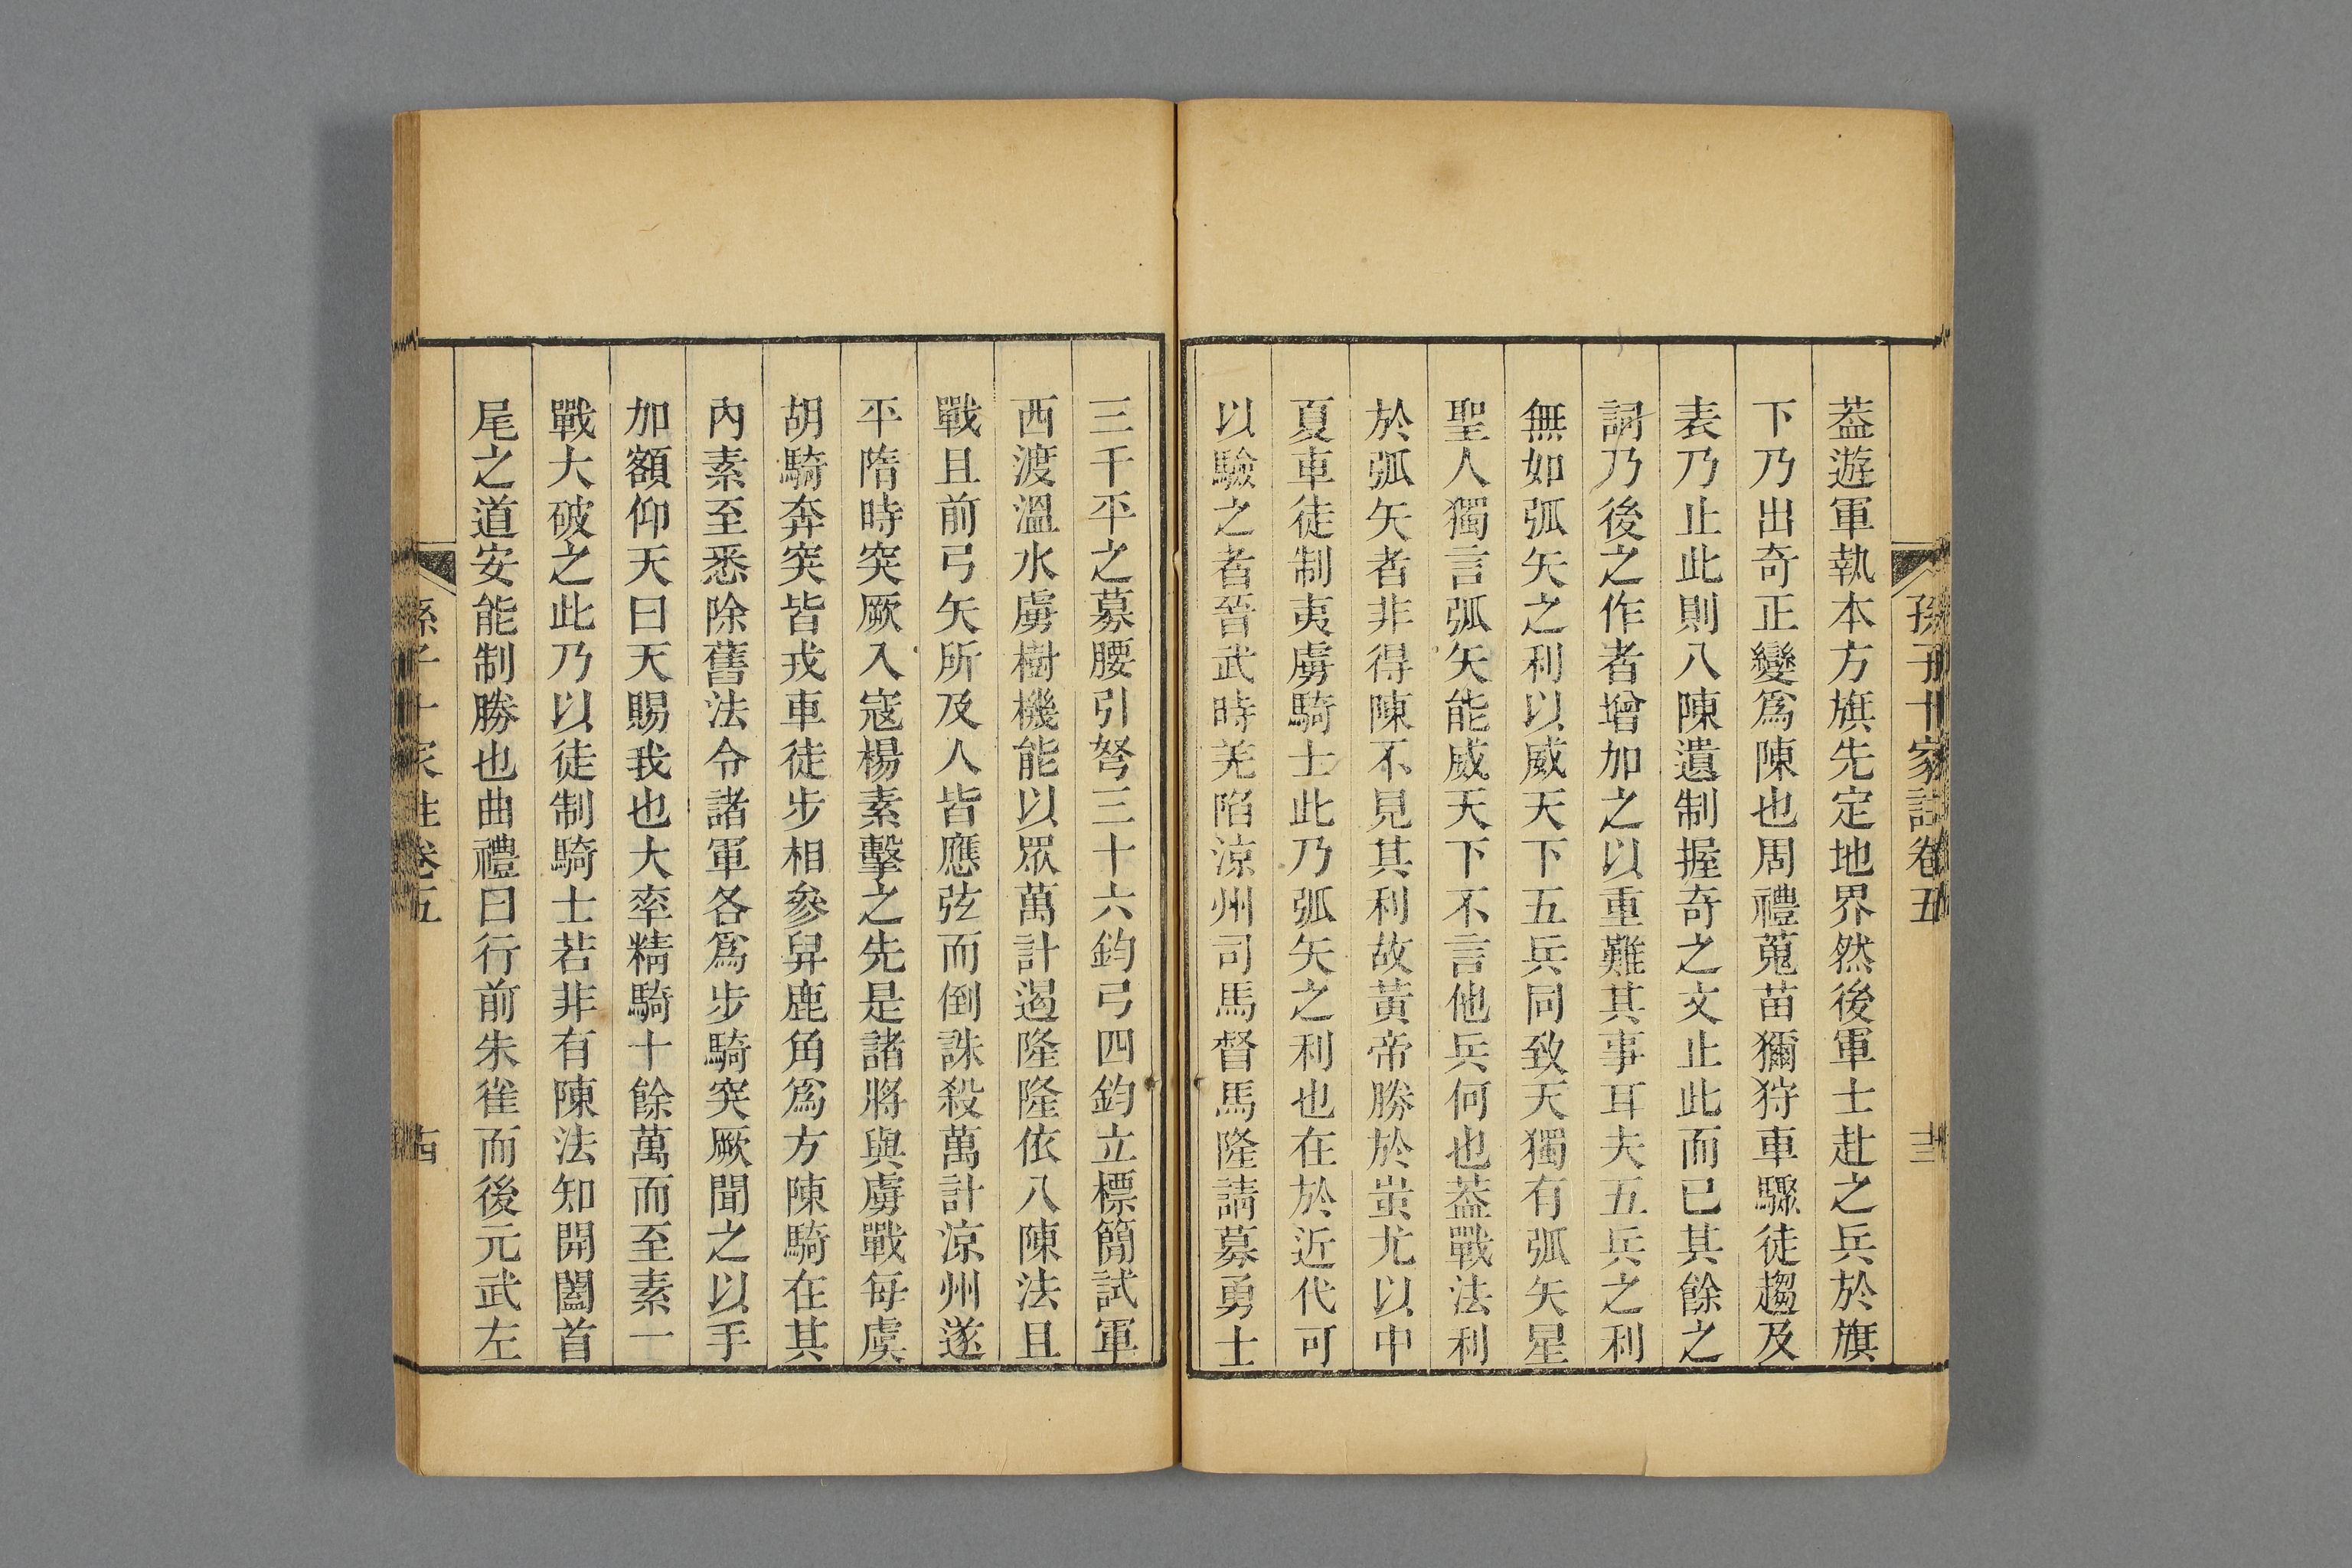 孫子十家註卷五
葢遊軍執本方旗先定地界然後軍士赴之兵於旗
下乃出奇正變爲陳也周禮蒐苗獮狩車驟徒趨及
表乃止此則八陳遺制握奇之文止此而已其餘之
詞乃後之作者增加之以重難其事耳夫五兵之利
無如弧矢之利以威天下五兵同致天獨有弧矢星
聖人獨言弧矢能威天下不言他兵何也葢戰法利
於弧矢者非得陳不見其利故黃帝勝於蚩尤以中
夏車徒制夷虜騎士此乃弧矢之利也在於近代可
以驗之者晉武時羌陷涼州司馬督馬隆請募勇士
三千平之募腰引弩三十六鈞弓四鈞立標簡試軍
西渡溫水虜樹機能以眾萬計遏隆隆依八陳法且
戰且前弓矢所及人皆應弦而倒誅殺萬計涼州遂
平隋時突厥入寇楊素擊之先是諸將與虜戰每虞
胡騎奔突皆戎車徒步相參舁鹿角爲方陳騎在其
內素至悉除舊法令諸軍各爲步騎突厥聞之以手
加額仰天曰天賜我也大率精騎十餘萬而至素一
戰大破之此乃以徒制騎士若非有陳法知開闔首
尾之道安能制勝也曲禮曰行前朱雀而後元武左
孫子十家註卷五